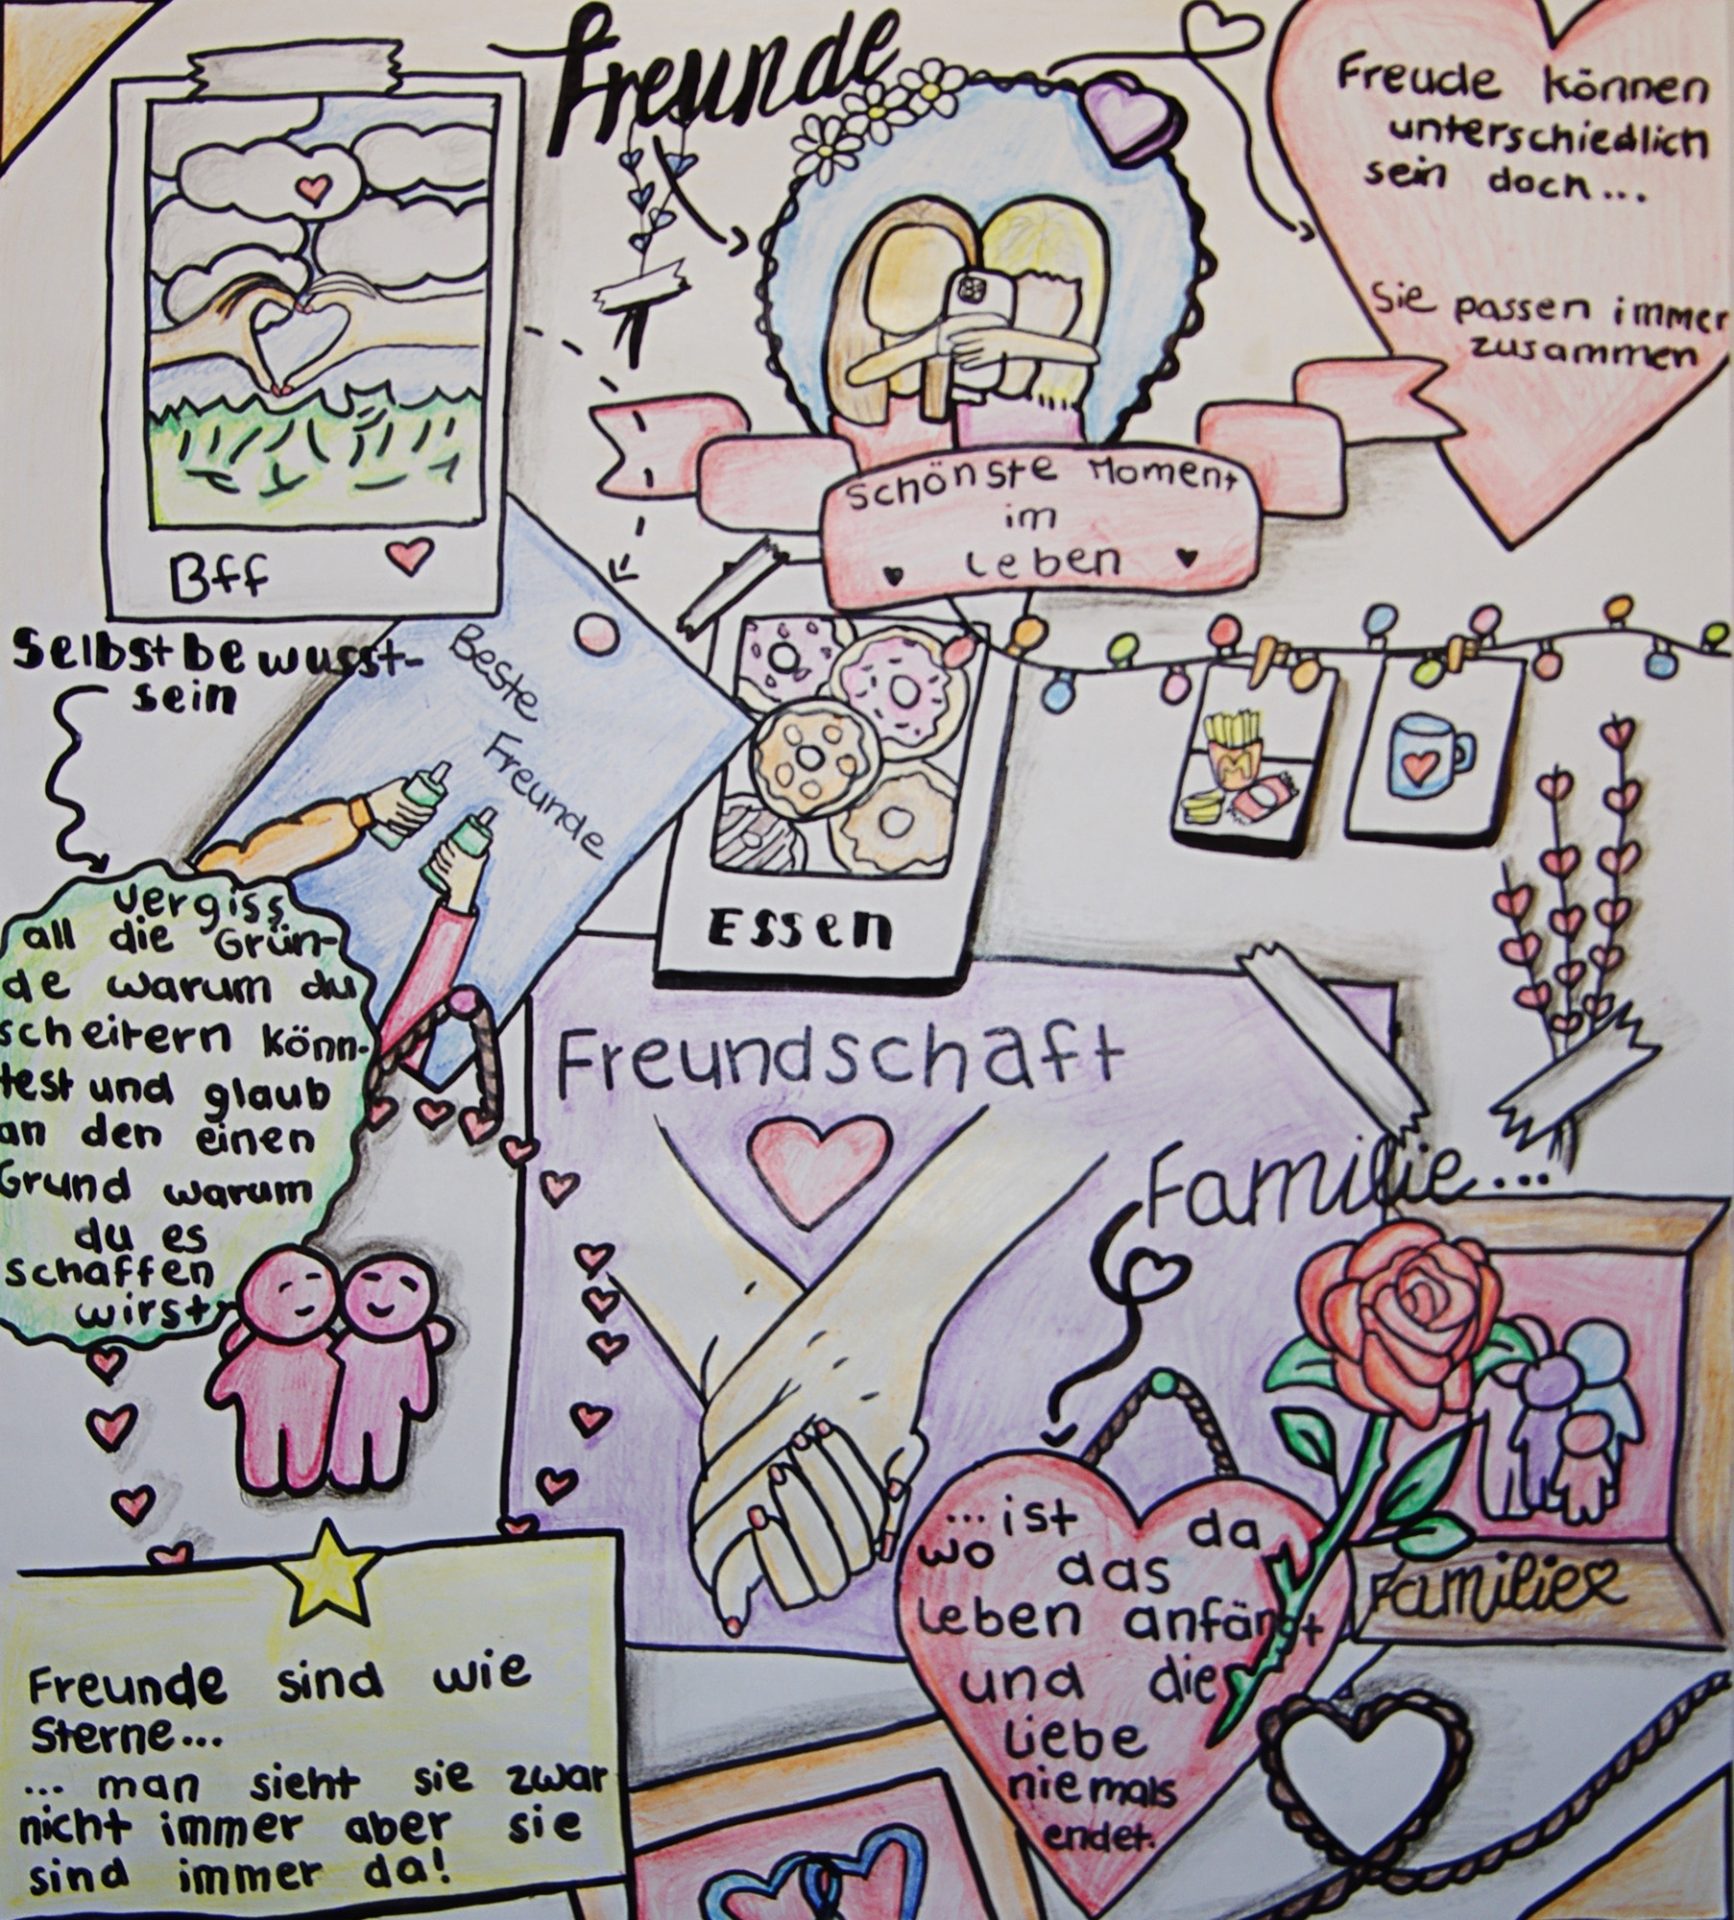 Freunde
Freude können
unterschiedlich
sein doch...
Sie passen immer
zusammen
Schönste Moment
im
Leben
Bff
Selbstbewusst-
sein
Beste
Freunde
Essen
vergiss
all die Grün-
de warum du
scheitern könn-
test und glaub
an den einen
Grund warum
du es
schaffen
wirst
Freundschaft
Familie...
...ist da
wo das
Leben anfängt
und die
Liebe
niemals
endet.
Familie
Freunde sind wie
Sterne...
... man sieht sie zwar
nicht immer aber sie
sind immer da!